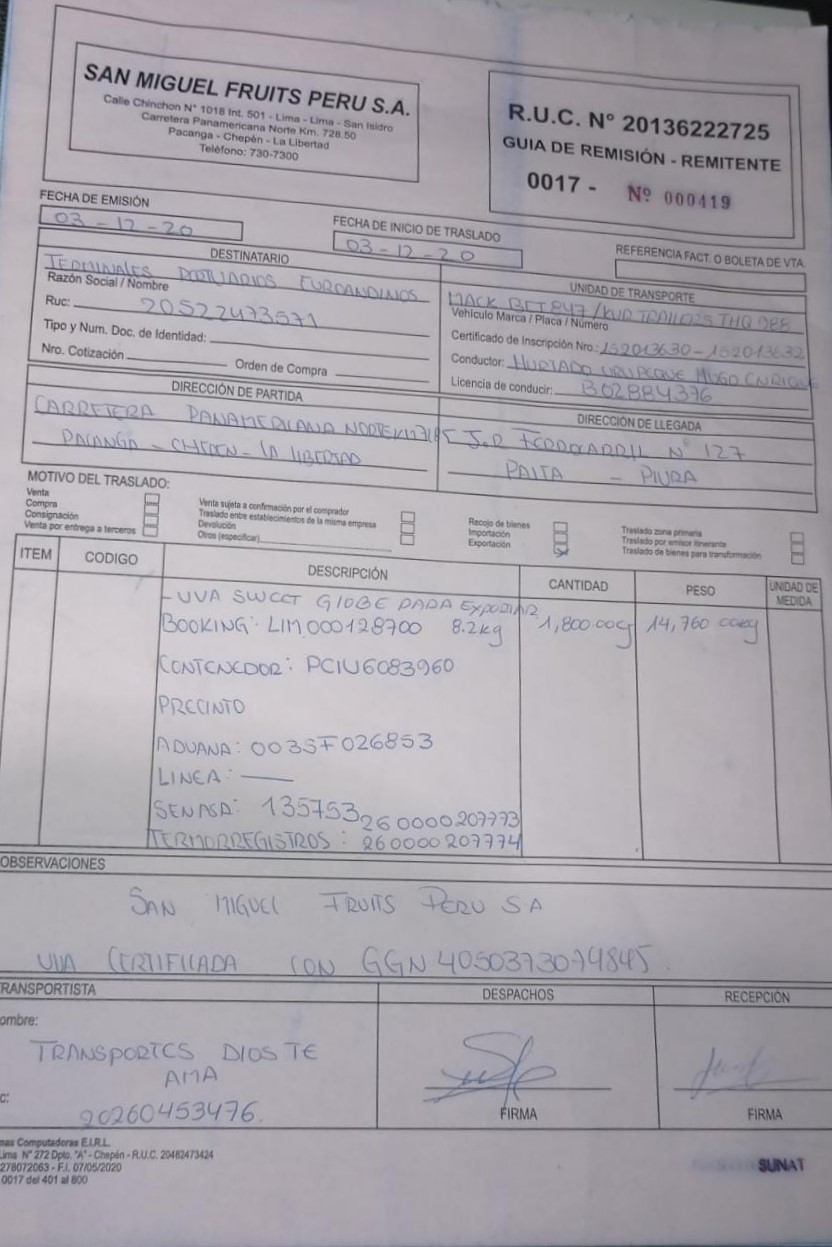 SAN MIGUEL FRUITS PERU S.A.
Calle Chinchon N° 1018 Int. 501 - Lima - Lima - San Isidro
Carretera Panamericana Norte Km. 728.50
Pacanga - Chepén - La Libertad
Teléfono: 730-7300
R.U.C. N° 20136222725
GUIA DE REMISIÓN - REMITENTE
0017 - Nº 000419
FECHA DE EMISIÓN
03-12-20
FECHA DE INICIO DE TRASLADO
03-12-20
REFERENCIA FACT. O BOLETA DE VTA.
DESTINATARIO
TERMINALES PORTUARIOS EUROANDINOS
Razón Social / Nombre
Ruc: 20522473571
Tipo y Num. Doc. de Identidad:
Nro. Cotización Orden de Compra
UNIDAD DE TRANSPORTE
MACK BCT847/KUR TRAILERS THQ988
Vehículo Marca / Placa / Número
Certificado de Inscripción Nro.: 152013630-152013632
Conductor: HURTADO HUGO ENRIQUE
Licencia de conducir: B02884376
DIRECCIÓN DE PARTIDA
CARRETERA PANAMERICANA NORTE
PACANGA - CHEPEN - LA LIBERTAD
DIRECCIÓN DE LLEGADA
FERROCARRIL N° 127
PAITA - PIURA
MOTIVO DEL TRASLADO:
Venta
Compra
Consignación
Venta por entrega a terceros
Venta sujeta a confirmación por el comprador
Traslado entre establecimientos de la misma empresa
Devolución
Otros (especificar)
Recojo de bienes
Importación
Exportación
Traslado zona primaria
Traslado por emisor itinerante
Traslado de bienes para transformación
ITEM CODIGO DESCRIPCIÓN CANTIDAD PESO UNIDAD DE MEDIDA
- UVA SWEET GLOBE PARA EXPORTAR
BOOKING: LIM000128700 8.2kg 1,800.00cj 14,760.00kg
CONTENEDOR: PCIU6083960
PRECINTO
ADUANA: 003SF026853
LINEA: —
SENASA: 135753
260000207773
TERMORREGISTROS: 260000207774
OBSERVACIONES
SAN MIGUEL FRUITS PERU SA
UVA CERTIFICADA CON GGN 4050373074845.
TRANSPORTISTA
ombre:
TRANSPORTES DIOS TE
AMA
c:
20260453476.
DESPACHOS
FIRMA
RECEPCIÓN
FIRMA
mas Computadoras E.I.R.L.
Lima N° 272 Dpto. "A" - Chepén - R.U.C. 20482473424
278072063 - F.I. 07/05/2020
0017 del 401 al 800
SUNAT